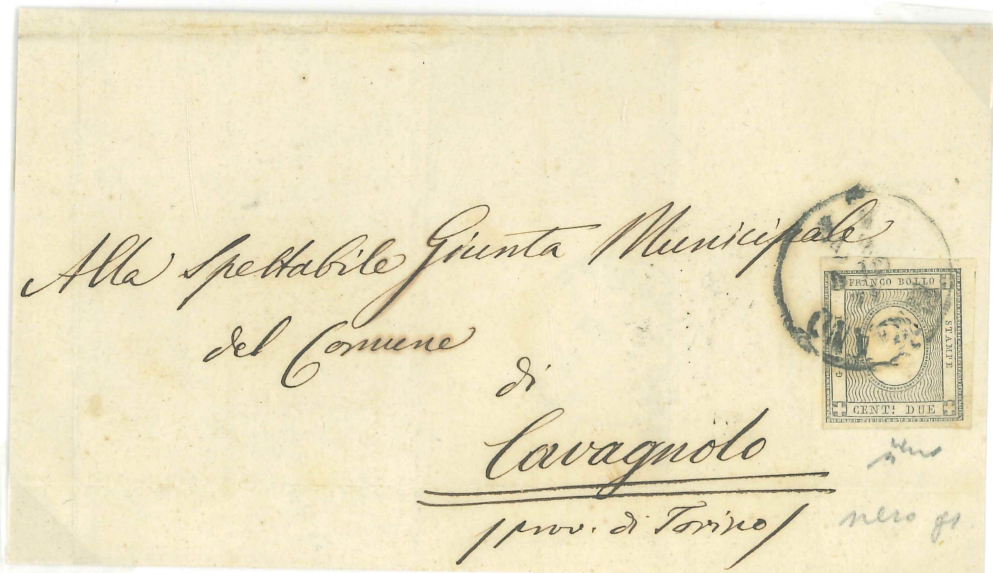 Alla Spettabile Giunta Municipale
del Comune
di
Cavagnolo
/prov. di Torino/
FRANCO BOLLO
STAMPE
CENT: DUE
nero